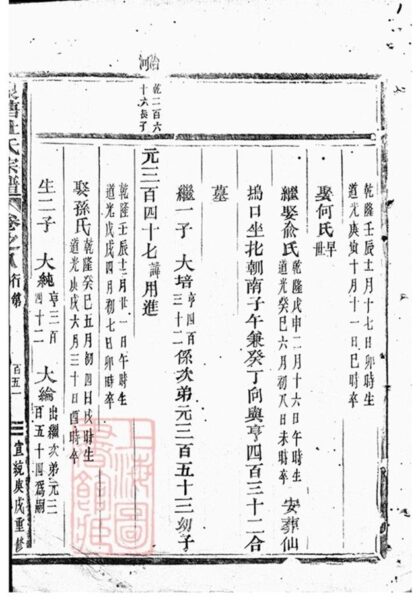 乾隆壬辰
月十七日卯時生
道光庚寅十月十一日巳時卒
娶何氏早世
繼娶俞氏
乾隆戊申二月十六日午時生
道光癸巳六月初八日未時卒
安葬仙
塢口坐北朝南子午兼癸丁向與亨四百三十二合
墓
繼一子 大培 亨四百三十二 係次弟元三百五十三幼子
治河
乾二百六十六長子
元三百四十七 諱用進
乾隆壬辰十二月廿一日午時生
道光戊戌四月初七日卯時卒
娶孫氏
乾隆癸巳五月初四日戌時生
道光庚戌六月三十日酉時卒
生二子 大純 亨三百四十二 大綸 出繼次弟元三百五十四爲嗣
氏宗譜 卷之八 行第 百五一 宣統庚戌重修
上海圖書館藏